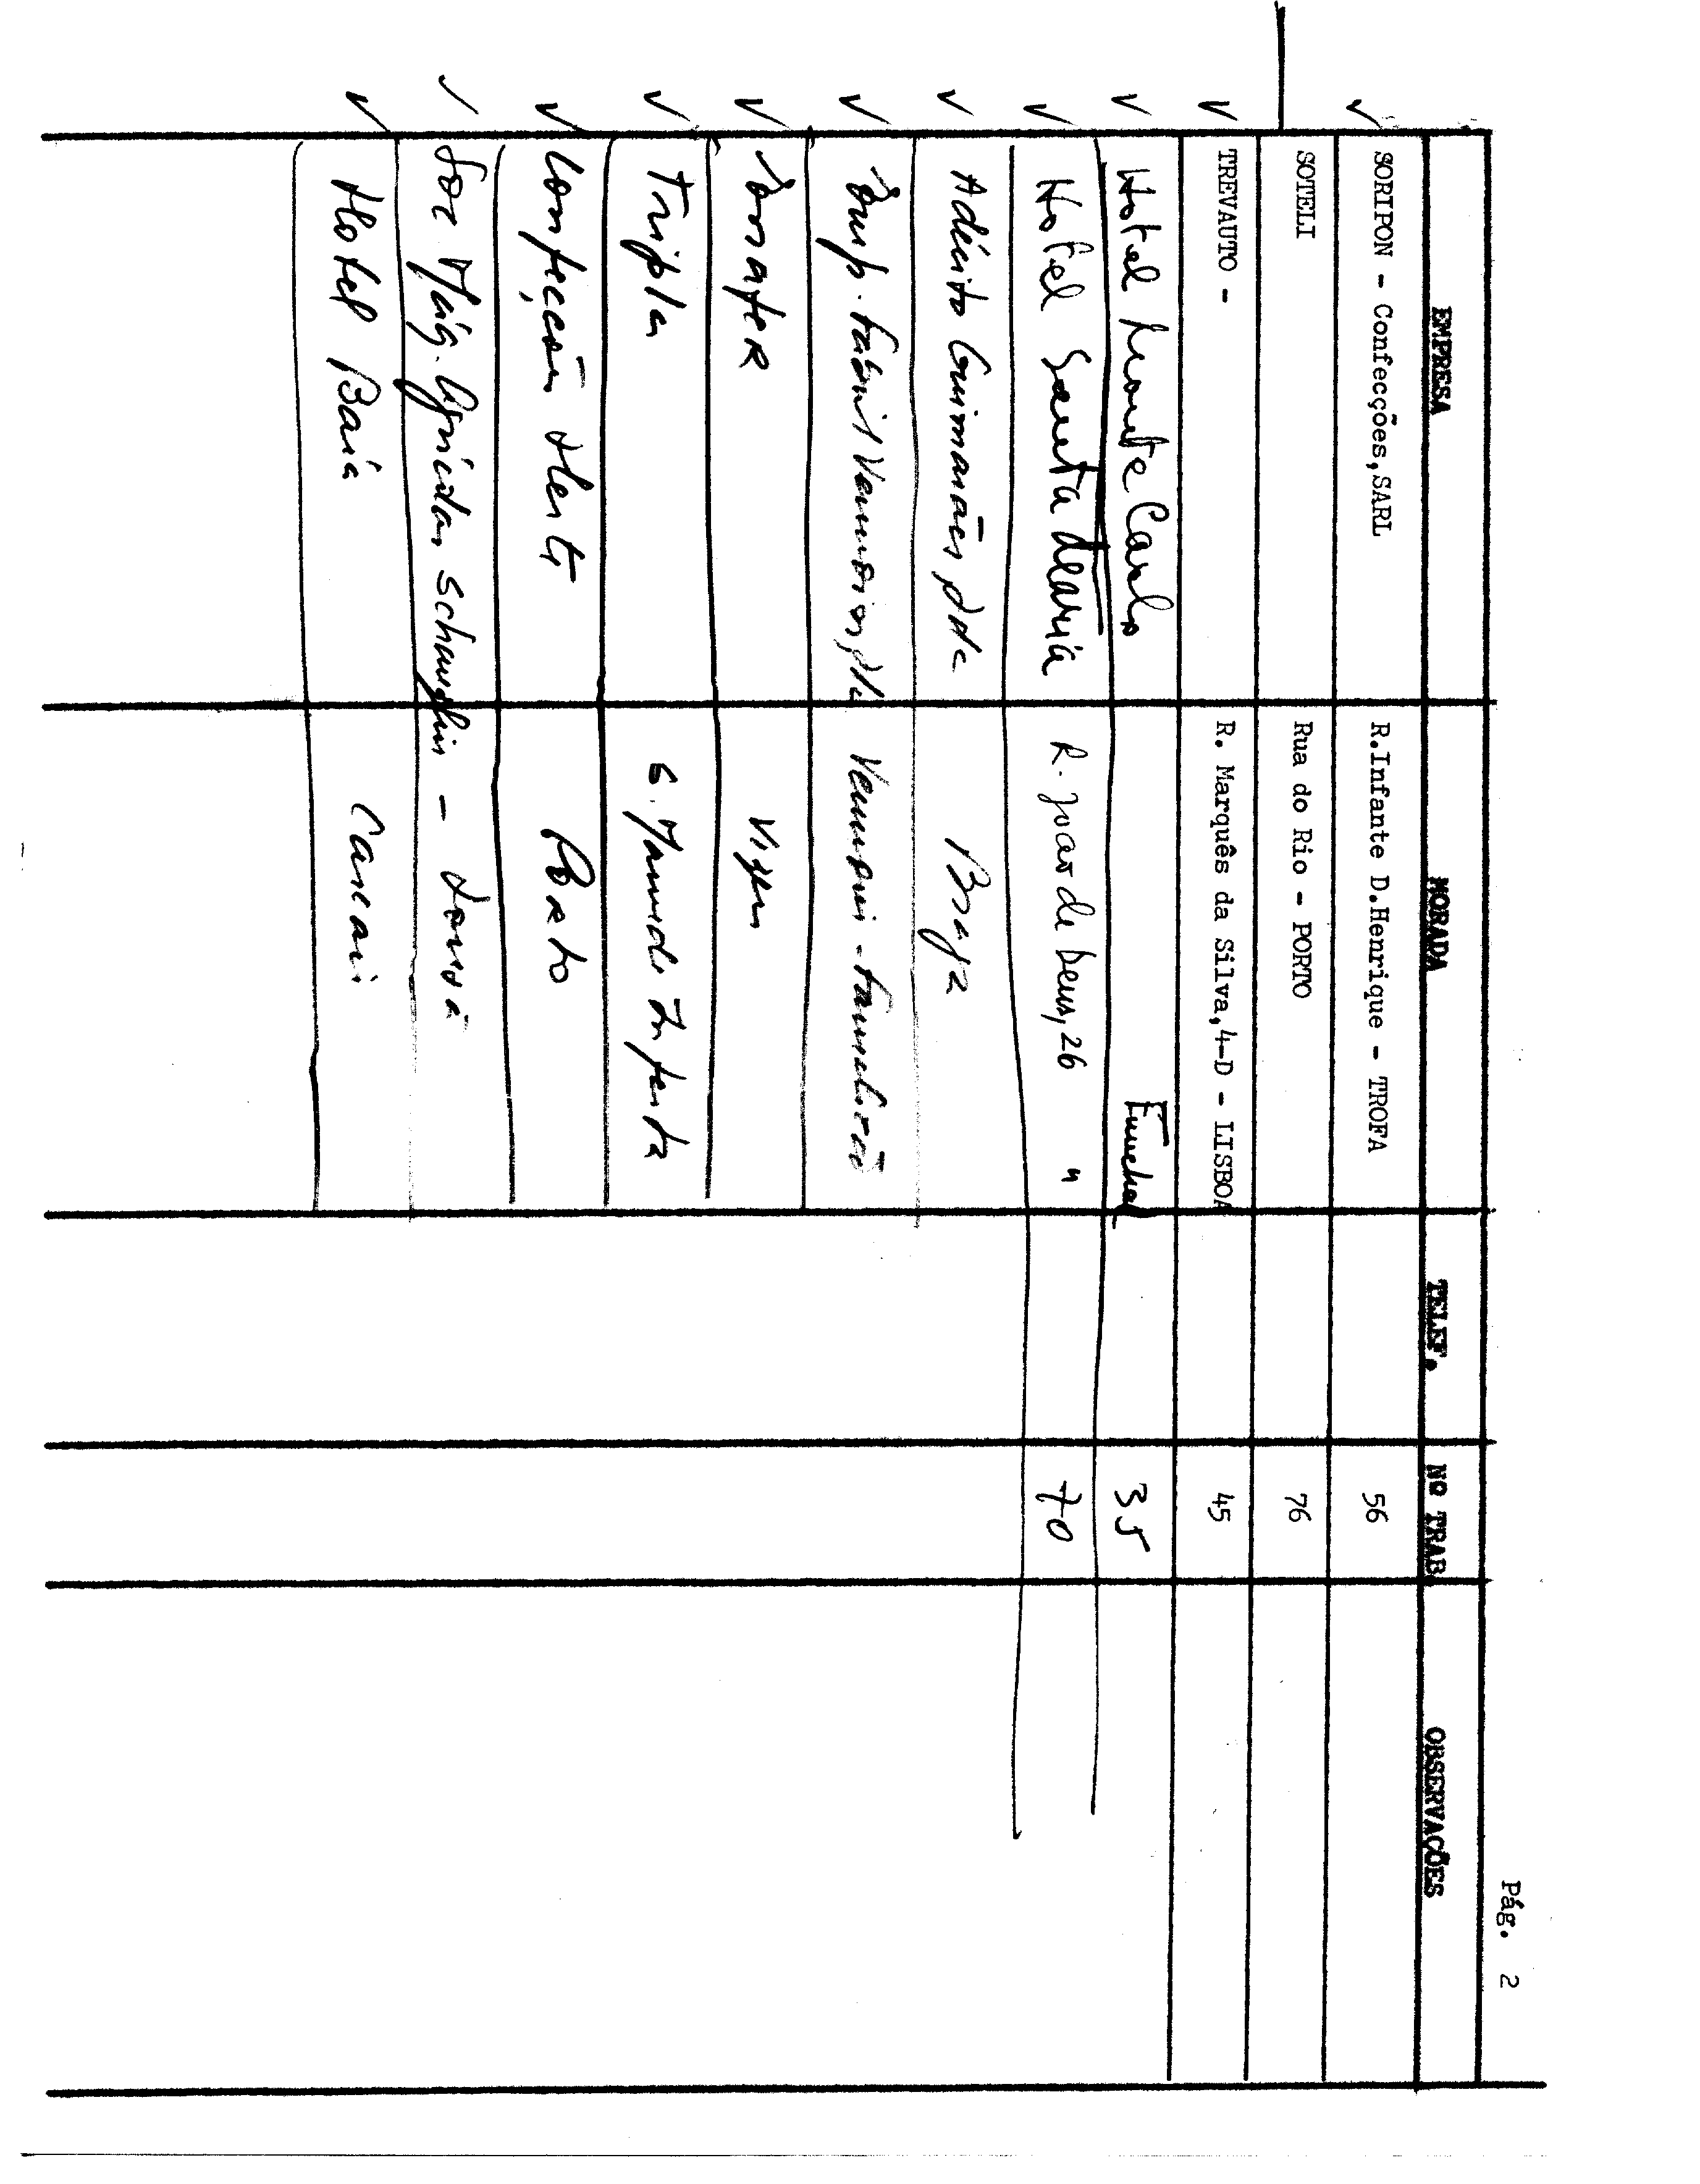 Pág. 2
EMPRESA MORADA TELEF. Nº TRAB. OBSERVAÇÕES
✓ SORIPON - Confecções,SARL R.Infante D.Henrique - TROFA 56
SOTELI Rua do Rio - PORTO 76
✓ TREVAUTO - R. Marquês da Silva,4-D - LISBOA 45
✓ Hotel Monte Carlo Funchal 35
✓ Hotel Santa Maria R. João de Deus, 26 " 70
✓ Adérito Guimarães, Lda Braga
✓ Emp. Fabril Vermoim, Lda Vermoim - Famalicão
✓ Viseu
✓ Tripla S. Mamede Infesta
✓ Confecções Porto
✓ Soc Máq. Agrícolas - Lousã
✓ Hotel Baía Cascais